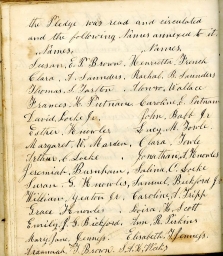 the Pledge was read and circulated
and the following Names annexed to it.
Names, Names,
Susan, E. P. Brown, Henrietta, French
Clara, A. Saunders, Rachel, B. Saunders
Thomas, A. Alonzo, Wallace
Frances, H. Caroline, E. Putnam
David, Locke Jr. John, Batt Jr.
Esther, Knowles Lucy M. Towle
Margaret, W. Marden, Clara, Towle
Arthur, C. Locke Jonathan, A. Knowles
Jeremiah, Burnham, Salina, C. Locke
Susan, G. Knowles, Samuel, Bickford Jr
William, Yeaton Jr, Caroline, A. Tripp
Grace Knowles H. Scott
Emily, J. G. Bickford, R. Perkins
Mary, Jane, Jenness. Elizabeth Jenness.
Hannah, D. Brown,